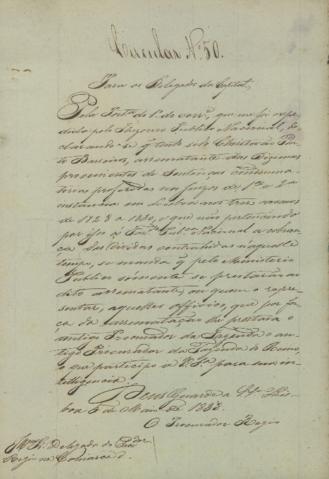 Circular Nº 50.
Para os Delegados da Capital,
Pela Portª de 1º de corrᵉ, que me foi expe
dida pelo Thezouro Publico Nacional, de
clarando-se q tendo sido Christovão Pin
to Barreiros, arrematante das Dizimas
provenientes de Sentenças condemna
torias proferidas nos Juizos de 1ª e 2ª
instancia em Lisboa nos tres annos
de 1828 a 1830, e que não pertencendo
por isso á Fazᵈᵃ Nacional a cobran
ça das Dividas contrahidas n'aquelle
tempo, se manda q pelo Ministerio
Publico somente se prestarão ao
dito arrematante, ou quem o repre
sentar, aquelles officios, que por for
ça da arrematação lhe prestava o
antigo Procurador da Fazenda
o que participo a V. Sª para sua in
telligencia.
Deos Guarde a V. Sª Lis
boa 5 de
O Procurador Regio
Delegado do Procᵈᵒʳ
Regio na Comarca d